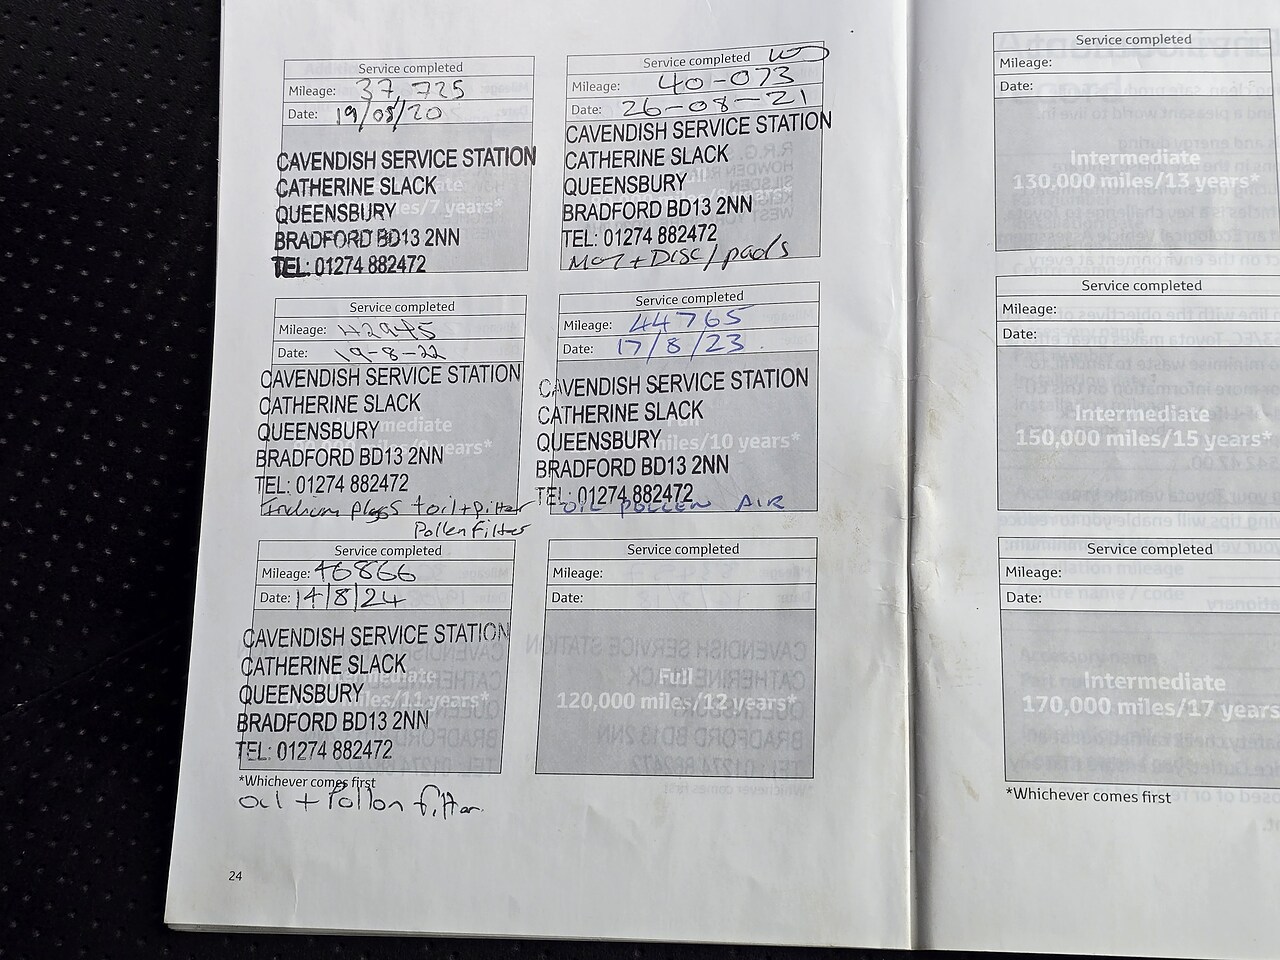 Service completed
Mileage: 37 725
Date: 19/08/20
CAVENDISH SERVICE STATION
CATHERINE SLACK
QUEENSBURY
BRADFORD BD13 2NN
TEL: 01274 882472
miles/7 years*
Service completed
Mileage: 40-073
Date: 26-08-21
CAVENDISH SERVICE STATION
CATHERINE SLACK
QUEENSBURY
BRADFORD BD13 2NN
TEL: 01274 882472
MOT + DISC/pads
Service completed
Mileage: 42945
Date: 19-8-22
CAVENDISH SERVICE STATION
CATHERINE SLACK
QUEENSBURY
BRADFORD BD13 2NN
TEL: 01274 882472
Iridium plugs + oil + filter
Pollen Filter
Service completed
Mileage: 44765
Date: 17/8/23
CAVENDISH SERVICE STATION
CATHERINE SLACK
QUEENSBURY
BRADFORD BD13 2NN
TEL: 01274 882472
Full
miles/10 years*
OIL POLLEN AIR
Service completed
Mileage: 46866
Date: 14/8/24
CAVENDISH SERVICE STATION
CATHERINE SLACK
QUEENSBURY
BRADFORD BD13 2NN
TEL: 01274 882472
Intermediate
miles/11 years*
*Whichever comes first
oil + Pollen filter
Service completed
Mileage:
Date:
Full
120,000 miles/12 years*
24
Service completed
Mileage:
Date:
Intermediate
130,000 miles/13 years*
Service completed
Mileage:
Date:
Intermediate
150,000 miles/15 years*
Service completed
Mileage:
Date:
Intermediate
170,000 miles/17 years
*Whichever comes first